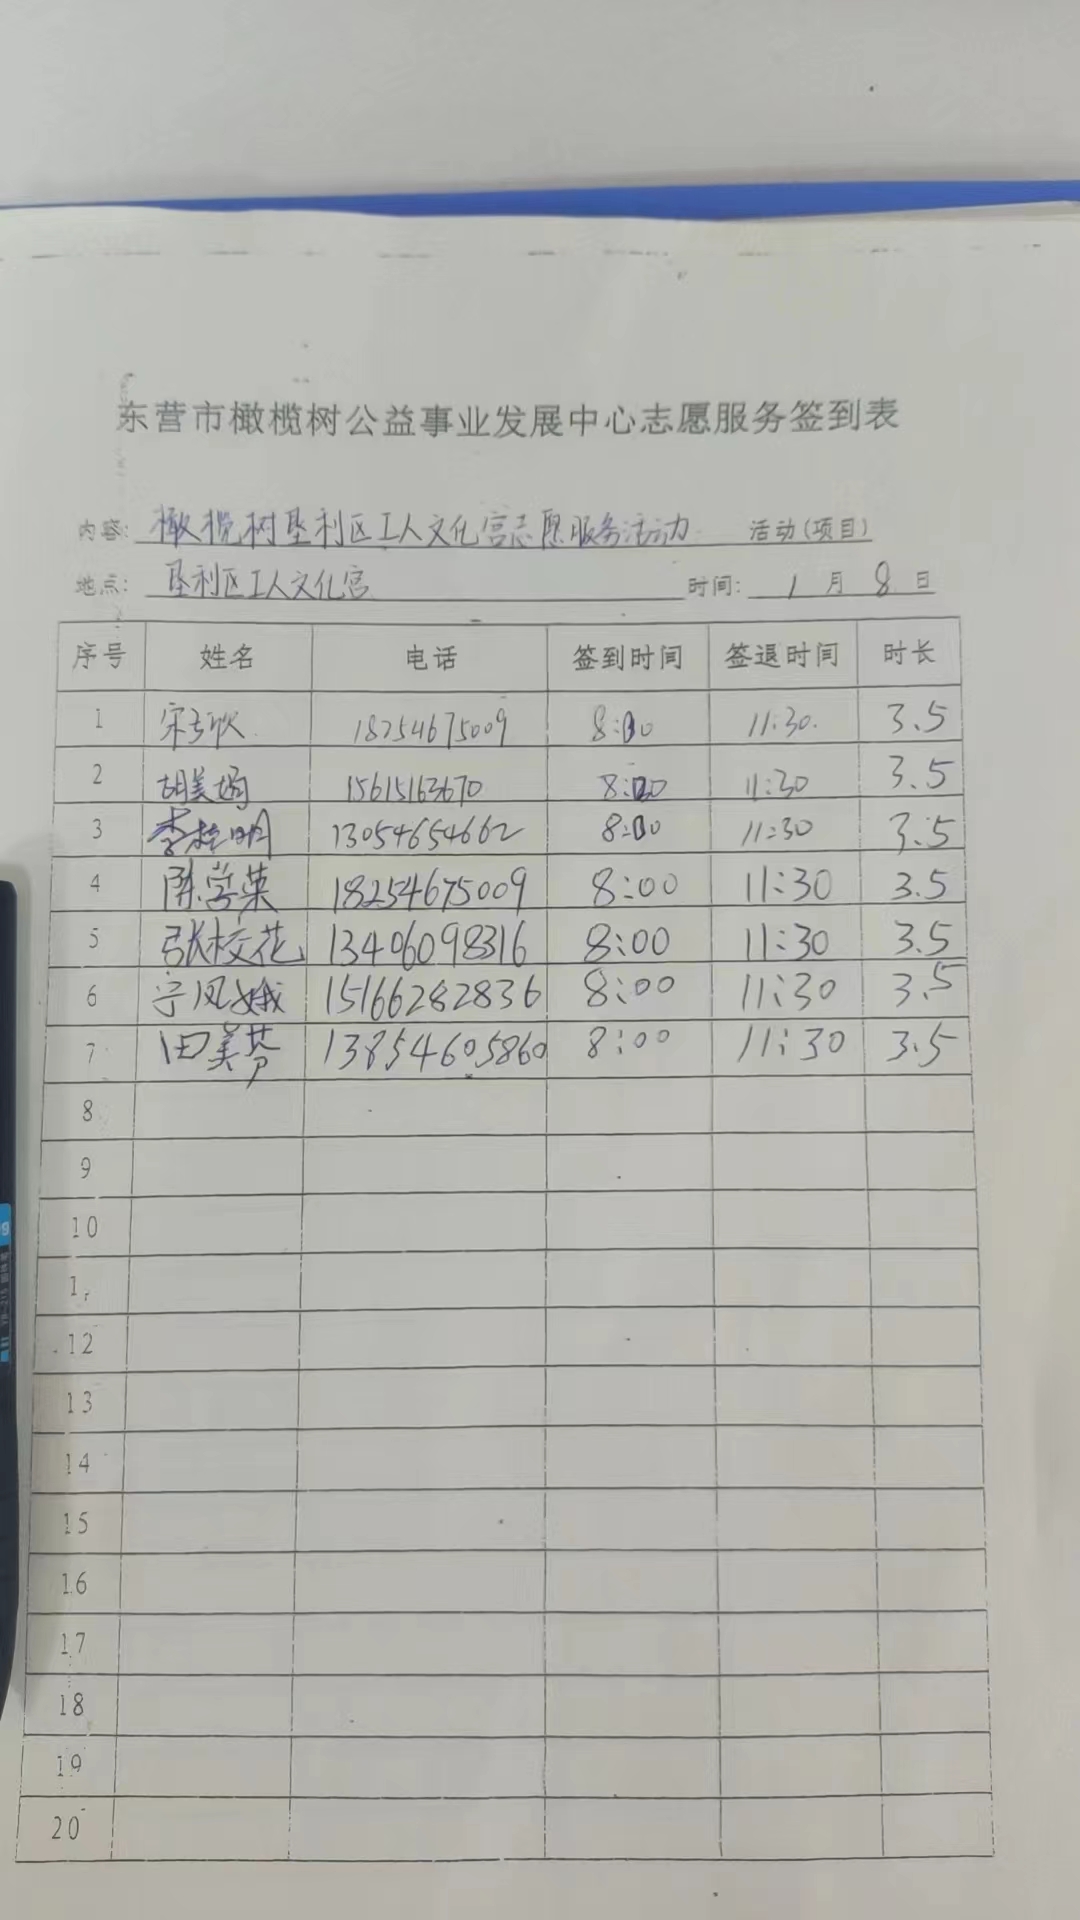 东营市橄榄树公益事业发展中心志愿服务签到表
内容: 橄榄树垦利区工人文化宫志愿服务活动 活动(项目)
地点: 垦利区工人文化宫 时间: 1 月 8 日
序号 姓名 电话 签到时间 签退时间 时长
1 18254675009 8:00 11:30. 3.5
2 胡美娟 15615163670 8:00 11:30 3.5
3 13054654662 8:00 11:30 3.5
4 陈学荣 18254675009 8:00 11:30 3.5
5 张校花 13406098316 8:00 11:30 3.5
6 宁凤娥 15166282836 8:00 11:30 3.5
7 田美芬 13854605860 8:00 11:30 3.5
8
9
10
12
13
14
15
16
17
18
19
20